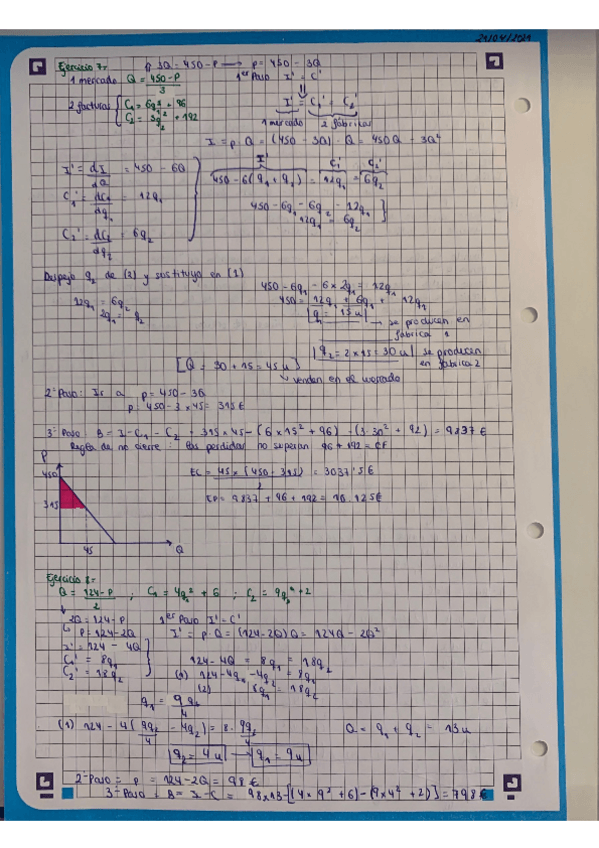 21/04/2021
Ejercicio 7:- 3Q = 450-P → p = 450 - 3Q
1 mercado Q = 450-P / 3 1er Paso I' = C'
2 facturas { C1 = 6q1² + 96
C2 = 3q2² + 192
I' = C1' = C2'
1 mercado 2 fábricas
I = p · Q = (450 - 3Q) · Q = 450Q - 3Q²
I' = dI/dQ = 450 - 6Q
I' C1' C2'
450 - 6(q1 + q2) = 12q1 = 6q2
C1' = dC1/dq1 = 12q1
450 - 6q1 - 6q2 = 12q1
12q1 = 6q2
C2' = dC2/dq2 = 6q2
Despejo q2 de (2) y sustituyo en (1)
12q1 = 6q2
2q1 = q2
450 - 6q1 - 6 × 2q1 = 12q1
450 = 12q1 + 6q1 + 12q1
q1 = 15 u → se producen en fábrica 1
q2 = 2 × 15 = 30 u se producen en fábrica 2
[Q = 30 + 15 = 45 u]
↳ venden en el mercado
2º Paso: Ir a p = 450 - 3Q
p = 450 - 3 × 45 = 315 €
3º Paso: B = I - C1 - C2 = 315 × 45 - (6 × 15² + 96) - (3·30² + 92) = 9837 €
Regla de no cierre: las perdidas no superan 96 + 192 = CF
P
450
315
45
Q
EC = 45 × (450 - 315) / 2 = 3037'5 €
EP = 9837 + 96 + 192 = 10.125 €
Ejercicio 8:-
Q = 124-P / 2 ; C1 = 4q1² + 6 ; C2 = 9q2² + 2
2Q = 124-P 1er Paso I' = C'
P = 124-2Q I' = p · Q = (124-2Q)Q = 124Q - 2Q²
I' = 124 - 4Q
C1' = 8q1
C2' = 18q2
124 - 4Q = 8q1 = 18q2
(1) 124 - 4q1 - 4q2 = 8q1
(2) 8q1 = 18q2
q1 = 9q2 / 4
(1) 124 - 4(9q2/4 - 4q2) = 8 · 9q2/4 Q = q1 + q2 = 13u
q2 = 4u → q1 = 9u
2º Paso = p = 124 - 2Q = 98 €
3º Paso: B = I - C = 98×13 - [(4 × 9² + 6) - (9×4² + 2)] = 798 €